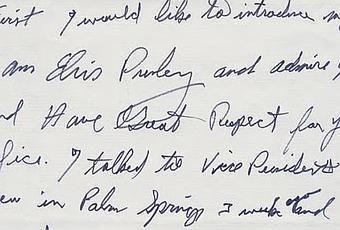 First I would like to introduce my
am Elvis Presley and admire y
d Have Great Respect for y
fice. I talked to Vice President
ew in Palm Springs 3 weeks and